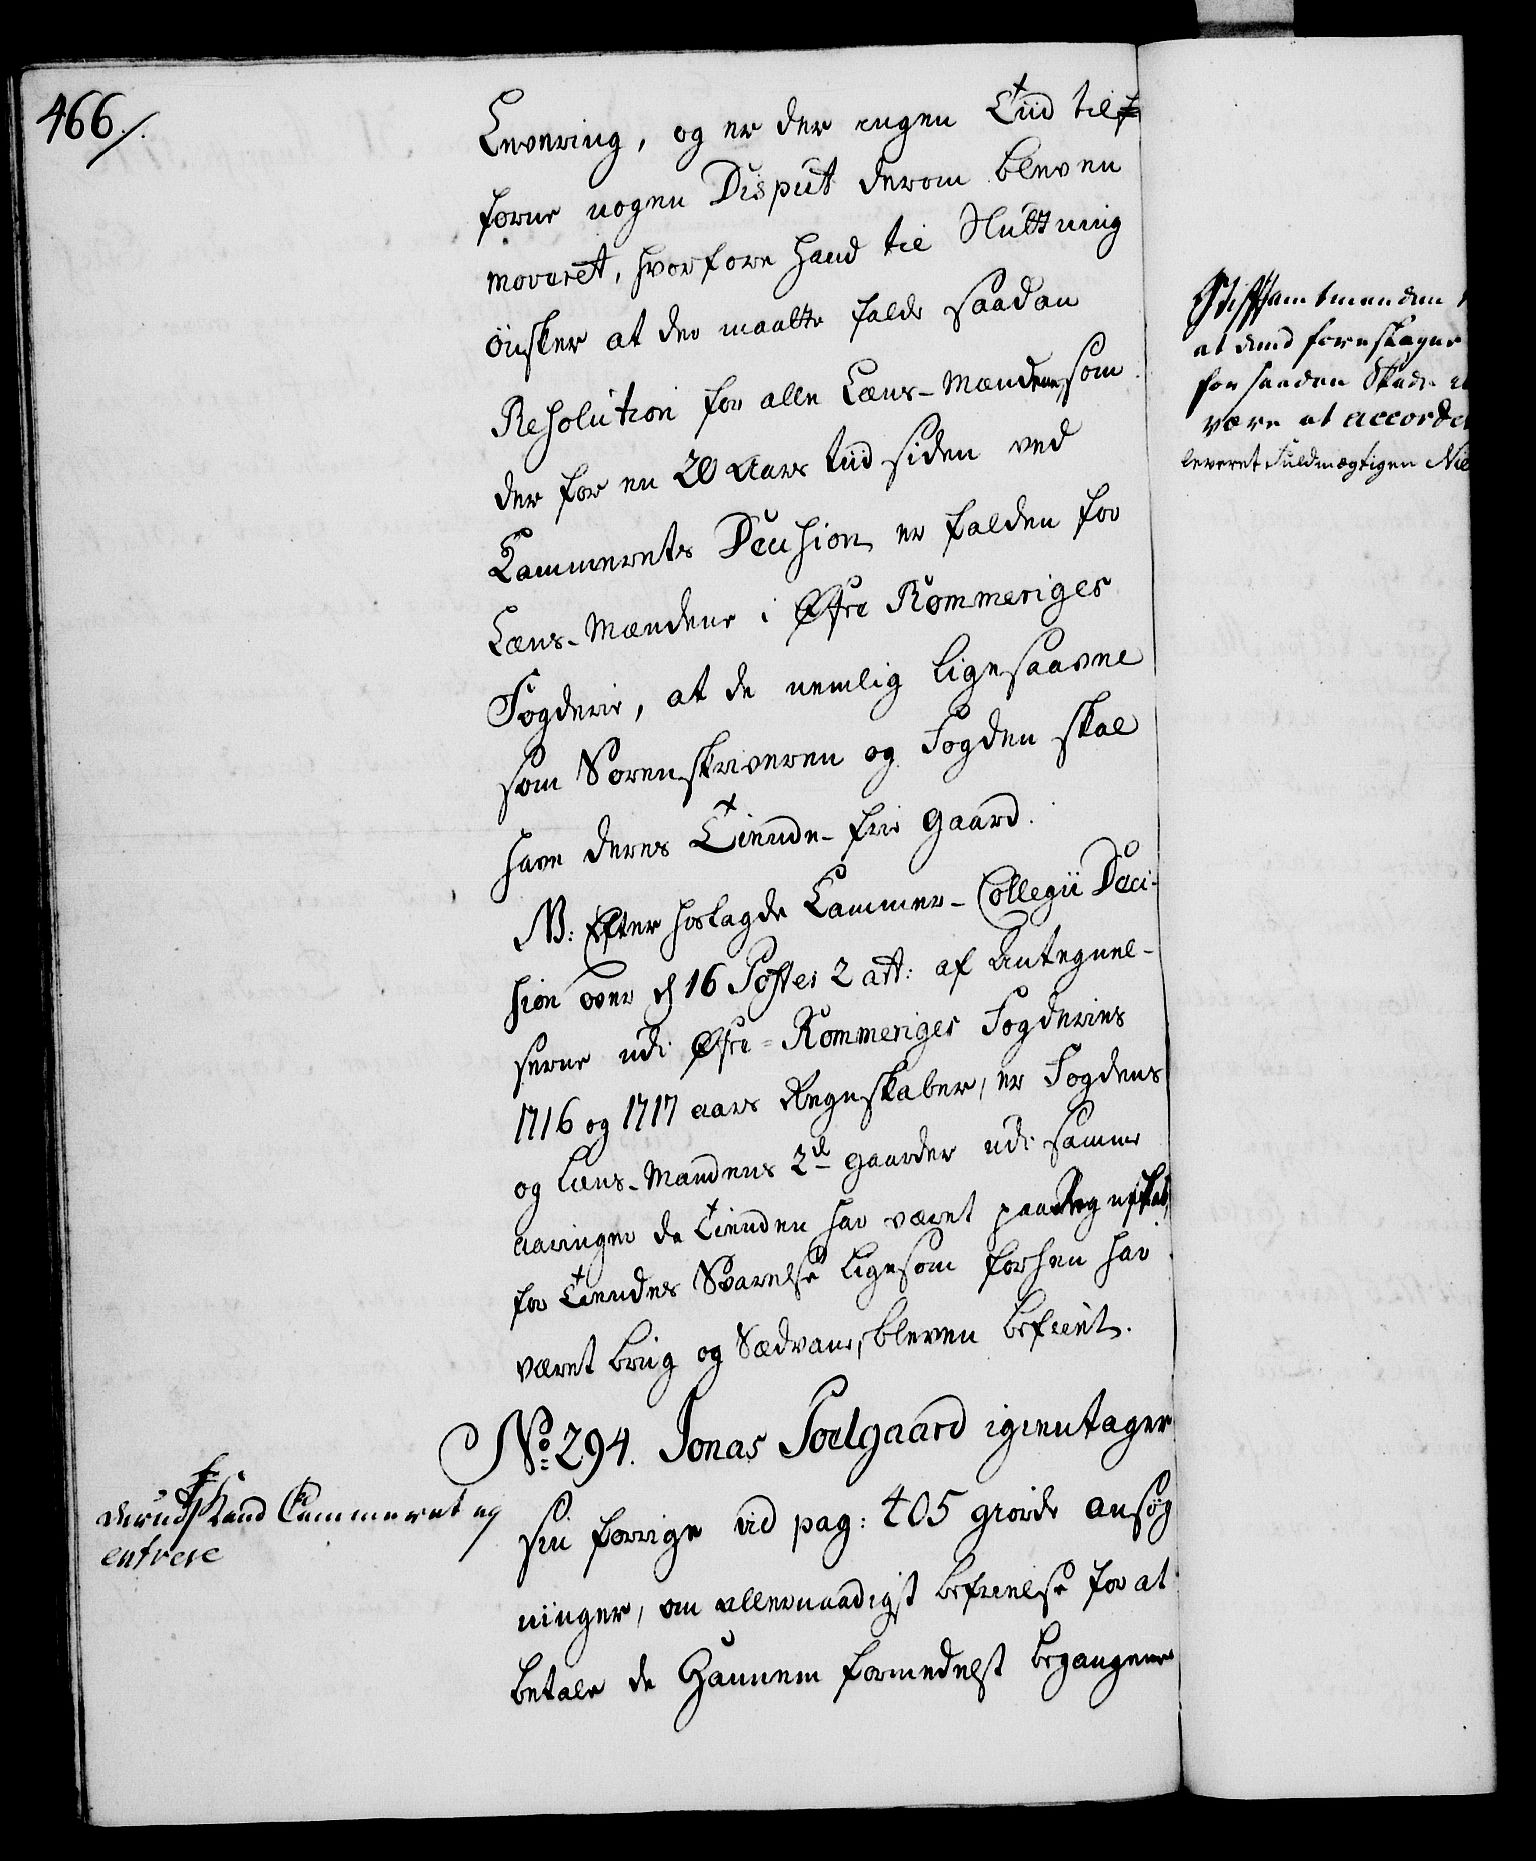 466./.
Levering, og er der ingen Tiid til-
forne nogen Disput derom bleven
moveret, hvorfore hand til Slutning
ønsker at der maatte falde saadan
Resolution for alle Læns-Mændene, som
der for en 20 Aars tiid siden ved
Cammerets Decision er falden for
Læns-Mændene i Øfre Rommeriges
Fogderie, at de nemlig ligesaavel
som Sorenskriveren og Fogden skal
have deres Tiende-frie Gaard.
NB: Efter hoslagde Cammer-Collegii Deci-
sion over d 16 Postes 2 att: af Antegnel-
serne udi Øfre-Rommeriges Fogderies
1716 og 1717 aars Regnskaber, er Fogdens
og Læns-Mandens 2de gaarder udi samme
aaringer da Tienden har været paa Regnskab,
for Tiendes Svarelse ligesom forhen har
været brug og Sædvane, bleven befriet.
No: 294. Jonas Poelgaard igientager
sin forrige vid pag: 405 giorde ansøg
ninger, om allernaadigst befrielse for at
betale de Hannem formedelst begangene
derudj Kand Cammeret ey
entrere
Stiftsamtmanden
at dend foreslagne
for saadan Skade
være at accorde
leveret Fuldmægtigen Nie